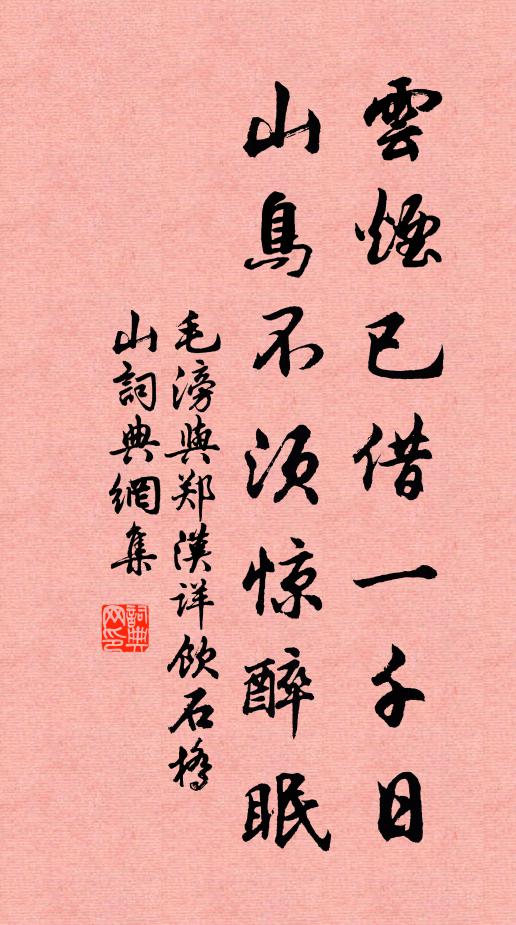 雲煙已借一千日
山鳥不須惊醉眠
毛滂與郑漢详飲石橋
山詞典網集
詞典
网印